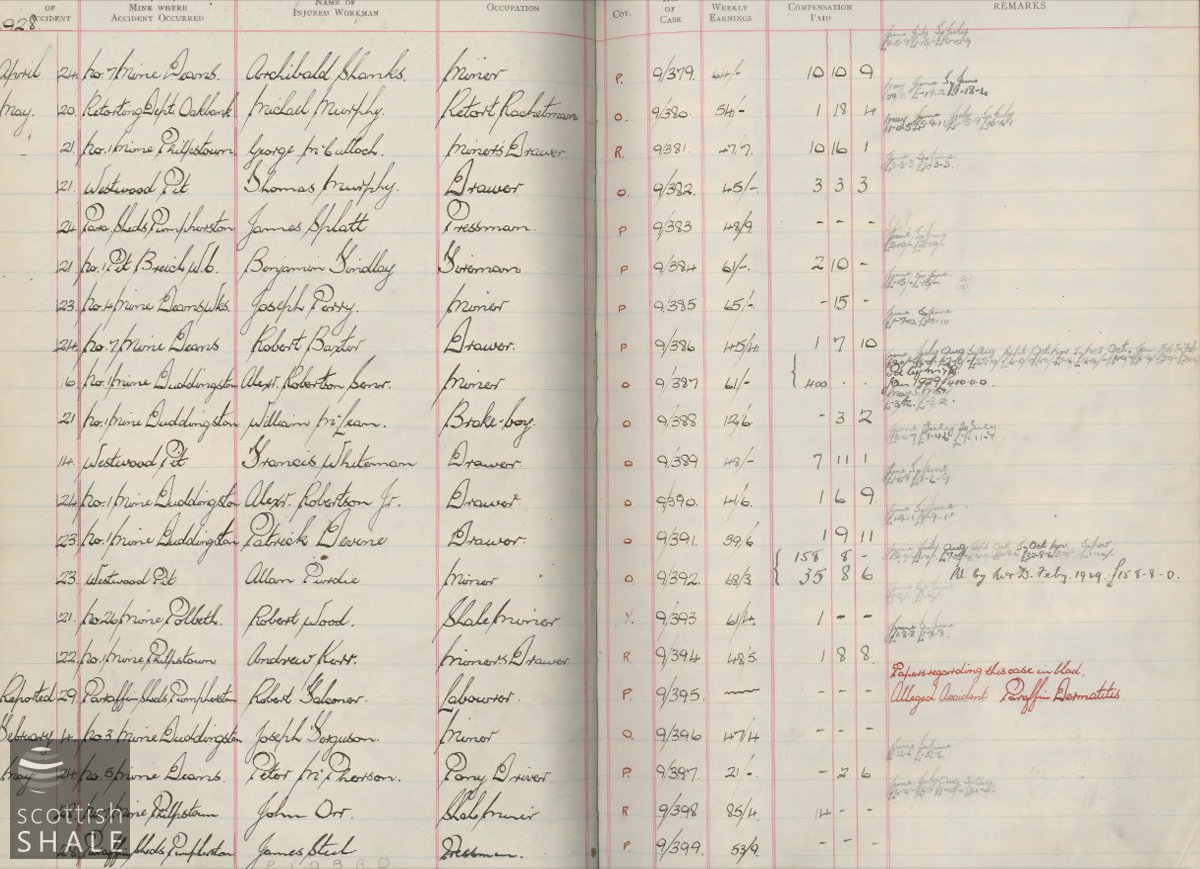 OF ACCIDENT MINE WHERE ACCIDENT OCCURRED NAME OF INJURED WORKMAN OCCUPATION COY. OF CASE WEEKLY EARNINGS COMPENSATION PAID REMARKS
1928
April 24. No. 7 Mine Deans. Archibald Shanks. Miner P. 9/379. 64/- 10 10 9
May. 20. Retorting Dept. Oakbank Michael Murphy. Retort Rachetman O. 9/380. 54/- 1 18 4
21. No. 1 Mine Philpstown. George McCulloch. Miner's Drawer R. 9/381. 47/7. 10 16 1
21. Westwood Pit Thomas Murphy. Drawer O. 9/382. 45/- 3 3 3
24. Para. Sheds Pumpherston James Splatt Pressman. P 9/383 48/9 - - -
21 No. 1 Pit Breich Wb. Benjamin Lindlay Foreman P 9/384 61/- 2 10 -
23. No. 4 Mine Deans Wks. Joseph Perry. Miner P 9/385 65/- - 15 -
24. No. 7 Mine Deans Robert Baxter Drawer. P 9/386 45/4 1 7 10
16 No. 1 Mine Duddingston Alexr. Robertson Senr. Miner O 9/387 61/- 400 . . Jan 1929 £400-0-0
21 No. 1 Mine Duddingston William McLean. Brake-boy. O 9/388 12/6 - 3 2
14. Westwood Pit Francis Whiteman Drawer O 9/389 48/- 7 11 1
24 No. 1 Mine Duddingston Alexr. Robertson Jr. Drawer O 9/390. 41/6. 1 6 9.
23 No. 1 Mine Duddingston Patrick Devene Drawer. O 9/391. 39/6 1 9 11
158 8 -
23. Westwood Pit Allan Purdie Miner O 9/392. 68/3 35 8 6 Rd. by W&D. Feby. 1929. £158-8-0.
21. No. 26 Mine Polbeth. Robert Wood. Shale Miner Y. 9/393 61/4. 1 - -
22. No. 1 Mine Philpstown Andrew Kerr. Miner's Drawer R 9/394 48/5 1 8 8.
Papers regarding this case in blad.
Reported 29. Paraffin Sheds Pumpherston Robert Falconer Labourer P. 9/395. - - - Alleged Accident Paraffin Dermatites
February 4. No. 3 Mine Duddingston Joseph Ferguson. Miner O. 9/396 47/4 - - -
May 24. No. 5 Mine Deans. Peter McPherson. Pony Driver P. 9/397. 21/- - 2 6
Mine Philpstown John Orr. Shale Miner R 9/398 85/4 14 - -
28. Paraffin Sheds Pumpherston James Steel Pressman. P. 9/399. 53/9. - - -
scottish
SHALE